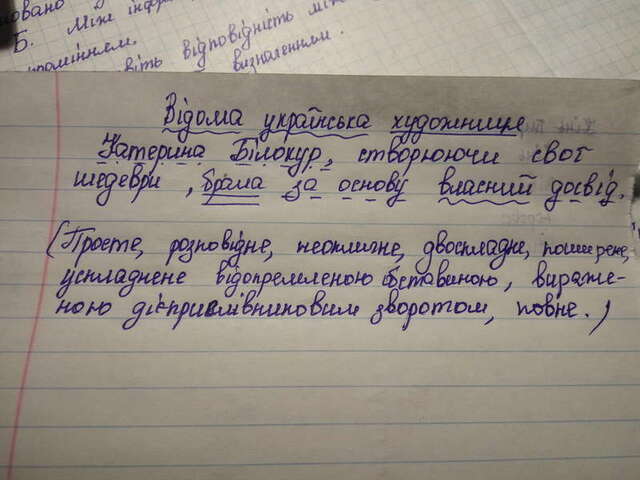 Б. Між
промінням.
віть відповідність між
визначенням.
Відома українська художниця
Катерина Білокур, створюючи свої
шедеври, брала за основу власний досвід.
(Просте, розповідне, неоклична, двоскладне, поширене,
ускладнене відопремленою обставиною, вираже-
ною дієприслівниковим зворотом, повне.)